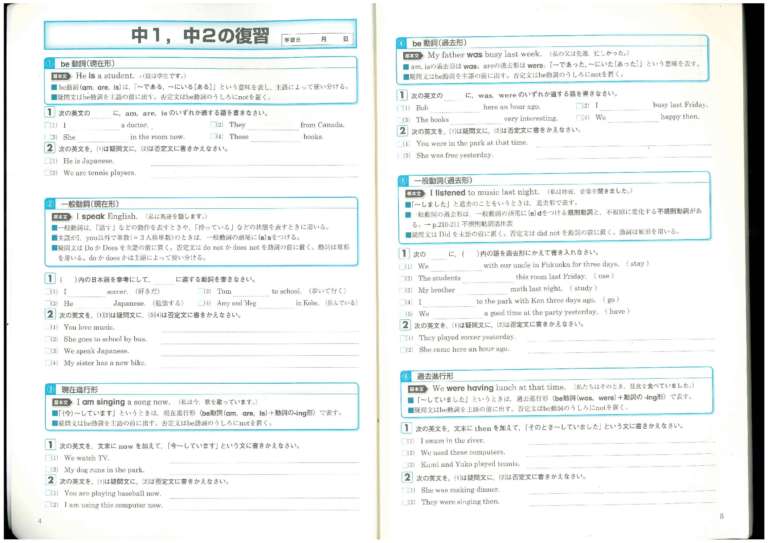 中1，中2の復習
学習日 月 日
1 be 動詞(現在形)
基本文 He is a student. (彼は学生です。)
■be動詞(am, are, is)は，「～である，～にいる[ある]」という意味を表し，主語によって使い分ける。
■疑問文はbe動詞を主語の前に出す。否定文はbe動詞のうしろにnotを置く。
1 次の英文の に，am, are, isのいずれか適する語を書きなさい。
(1) I a doctor. (2) They from Canada.
(3) She in the room now. (4) These books.
2 次の英文を，(1)は疑問文に，(2)は否定文に書きかえなさい。
(1) He is Japanese.
(2) We are tennis players.
2 一般動詞(現在形)
基本文 I speak English. (私は英語を話します。)
■一般動詞は，「話す」などの動作を表すときや，「持っている」などの状態を表すときに用いる。
■主語がI，you以外で単数(＝3人称単数)のときは，一般動詞の語尾に(e)sをつける。
■疑問文は Do か Does を主語の前に置く。否定文は do not か does not を動詞の前に置く。動詞は原形
を用いる。do か does かは主語によって使い分ける。
1 ( )内の日本語を参考にして， に適する動詞を書きなさい。
(1) I soccer. (好きだ) (2) Tom to school. (歩いて行く)
(3) He Japanese. (勉強する) (4) Amy and Meg in Kobe. (住んでいる)
2 次の英文を，(1)(2)は疑問文に，(3)(4)は否定文に書きかえなさい。
(1) You love music.
(2) She goes to school by bus.
(3) We speak Japanese.
(4) My sister has a new bike.
3 現在進行形
基本文 I am singing a song now. (私は今，歌を歌っています。)
■「(今)～しています」というときは，現在進行形〈be動詞(am, are, is)＋動詞の-ing形〉で表す。
■疑問文はbe動詞を主語の前に出す。否定文はbe動詞のうしろにnotを置く。
1 次の英文を，文末に now を加えて，「今～しています」という文に書きかえなさい。
(1) We watch TV.
(2) My dog runs in the park.
2 次の英文を，(1)は疑問文に，(2)は否定文に書きかえなさい。
(1) You are playing baseball now.
(2) I am using this computer now.
4
be 動詞(過去形)
基本文 My father was busy last week. (私の父は先週，忙しかった。)
■am, isの過去形は was，areの過去形は were。「～であった，～にいた[あった]」という意味を表す。
■疑問文はbe動詞を主語の前に出す。否定文はbe動詞のうしろにnotを置く。
1 次の英文の に，was, wereのいずれか適する語を書きなさい。
(1) Bob here an hour ago. (2) I busy last Friday.
(3) The books very interesting. (4) We happy then.
2 次の英文を，(1)は疑問文に，(2)は否定文に書きかえなさい。
(1) You were in the park at that time.
(2) She was free yesterday.
一般動詞(過去形)
基本文 I listened to music last night. (私は昨夜，音楽を聞きました。)
■「～しました」と過去のことをいうときは，過去形で表す。
■一般動詞の過去形は，一般動詞の語尾に(e)dをつける規則動詞と，不規則に変化する不規則動詞があ
る。→p.210-211 不規則動詞活用表
■疑問文は Did を主語の前に置く。否定文は did not を動詞の前に置く。動詞は原形を用いる。
1 次の に，( )内の語を過去形にかえて書き入れなさい。
(1) We with our uncle in Fukuoka for three days. ( stay )
(2) The students this room last Friday. ( use )
(3) My brother math last night. ( study )
(4) I to the park with Ken three days ago. ( go )
(5) We a good time at the party yesterday. ( have )
2 次の英文を，(1)は疑問文に，(2)は否定文に書きかえなさい。
(1) They played soccer yesterday.
(2) She came here an hour ago.
過去進行形
基本文 We were having lunch at that time. (私たちはそのとき，昼食を食べていました。)
■「～していました」というときは，過去進行形〈be動詞(was, were)＋動詞の -ing形〉で表す。
■疑問文はbe動詞を主語の前に出す。否定文はbe動詞のうしろにnotを置く。
1 次の英文を，文末に then を加えて，「そのとき～していました」という文に書きかえなさい。
(1) I swam in the river.
(2) We used these computers.
(3) Kumi and Yuko played tennis.
2 次の英文を，(1)は疑問文に，(2)は否定文に書きかえなさい。
(1) She was making dinner.
(2) They were singing then.
5